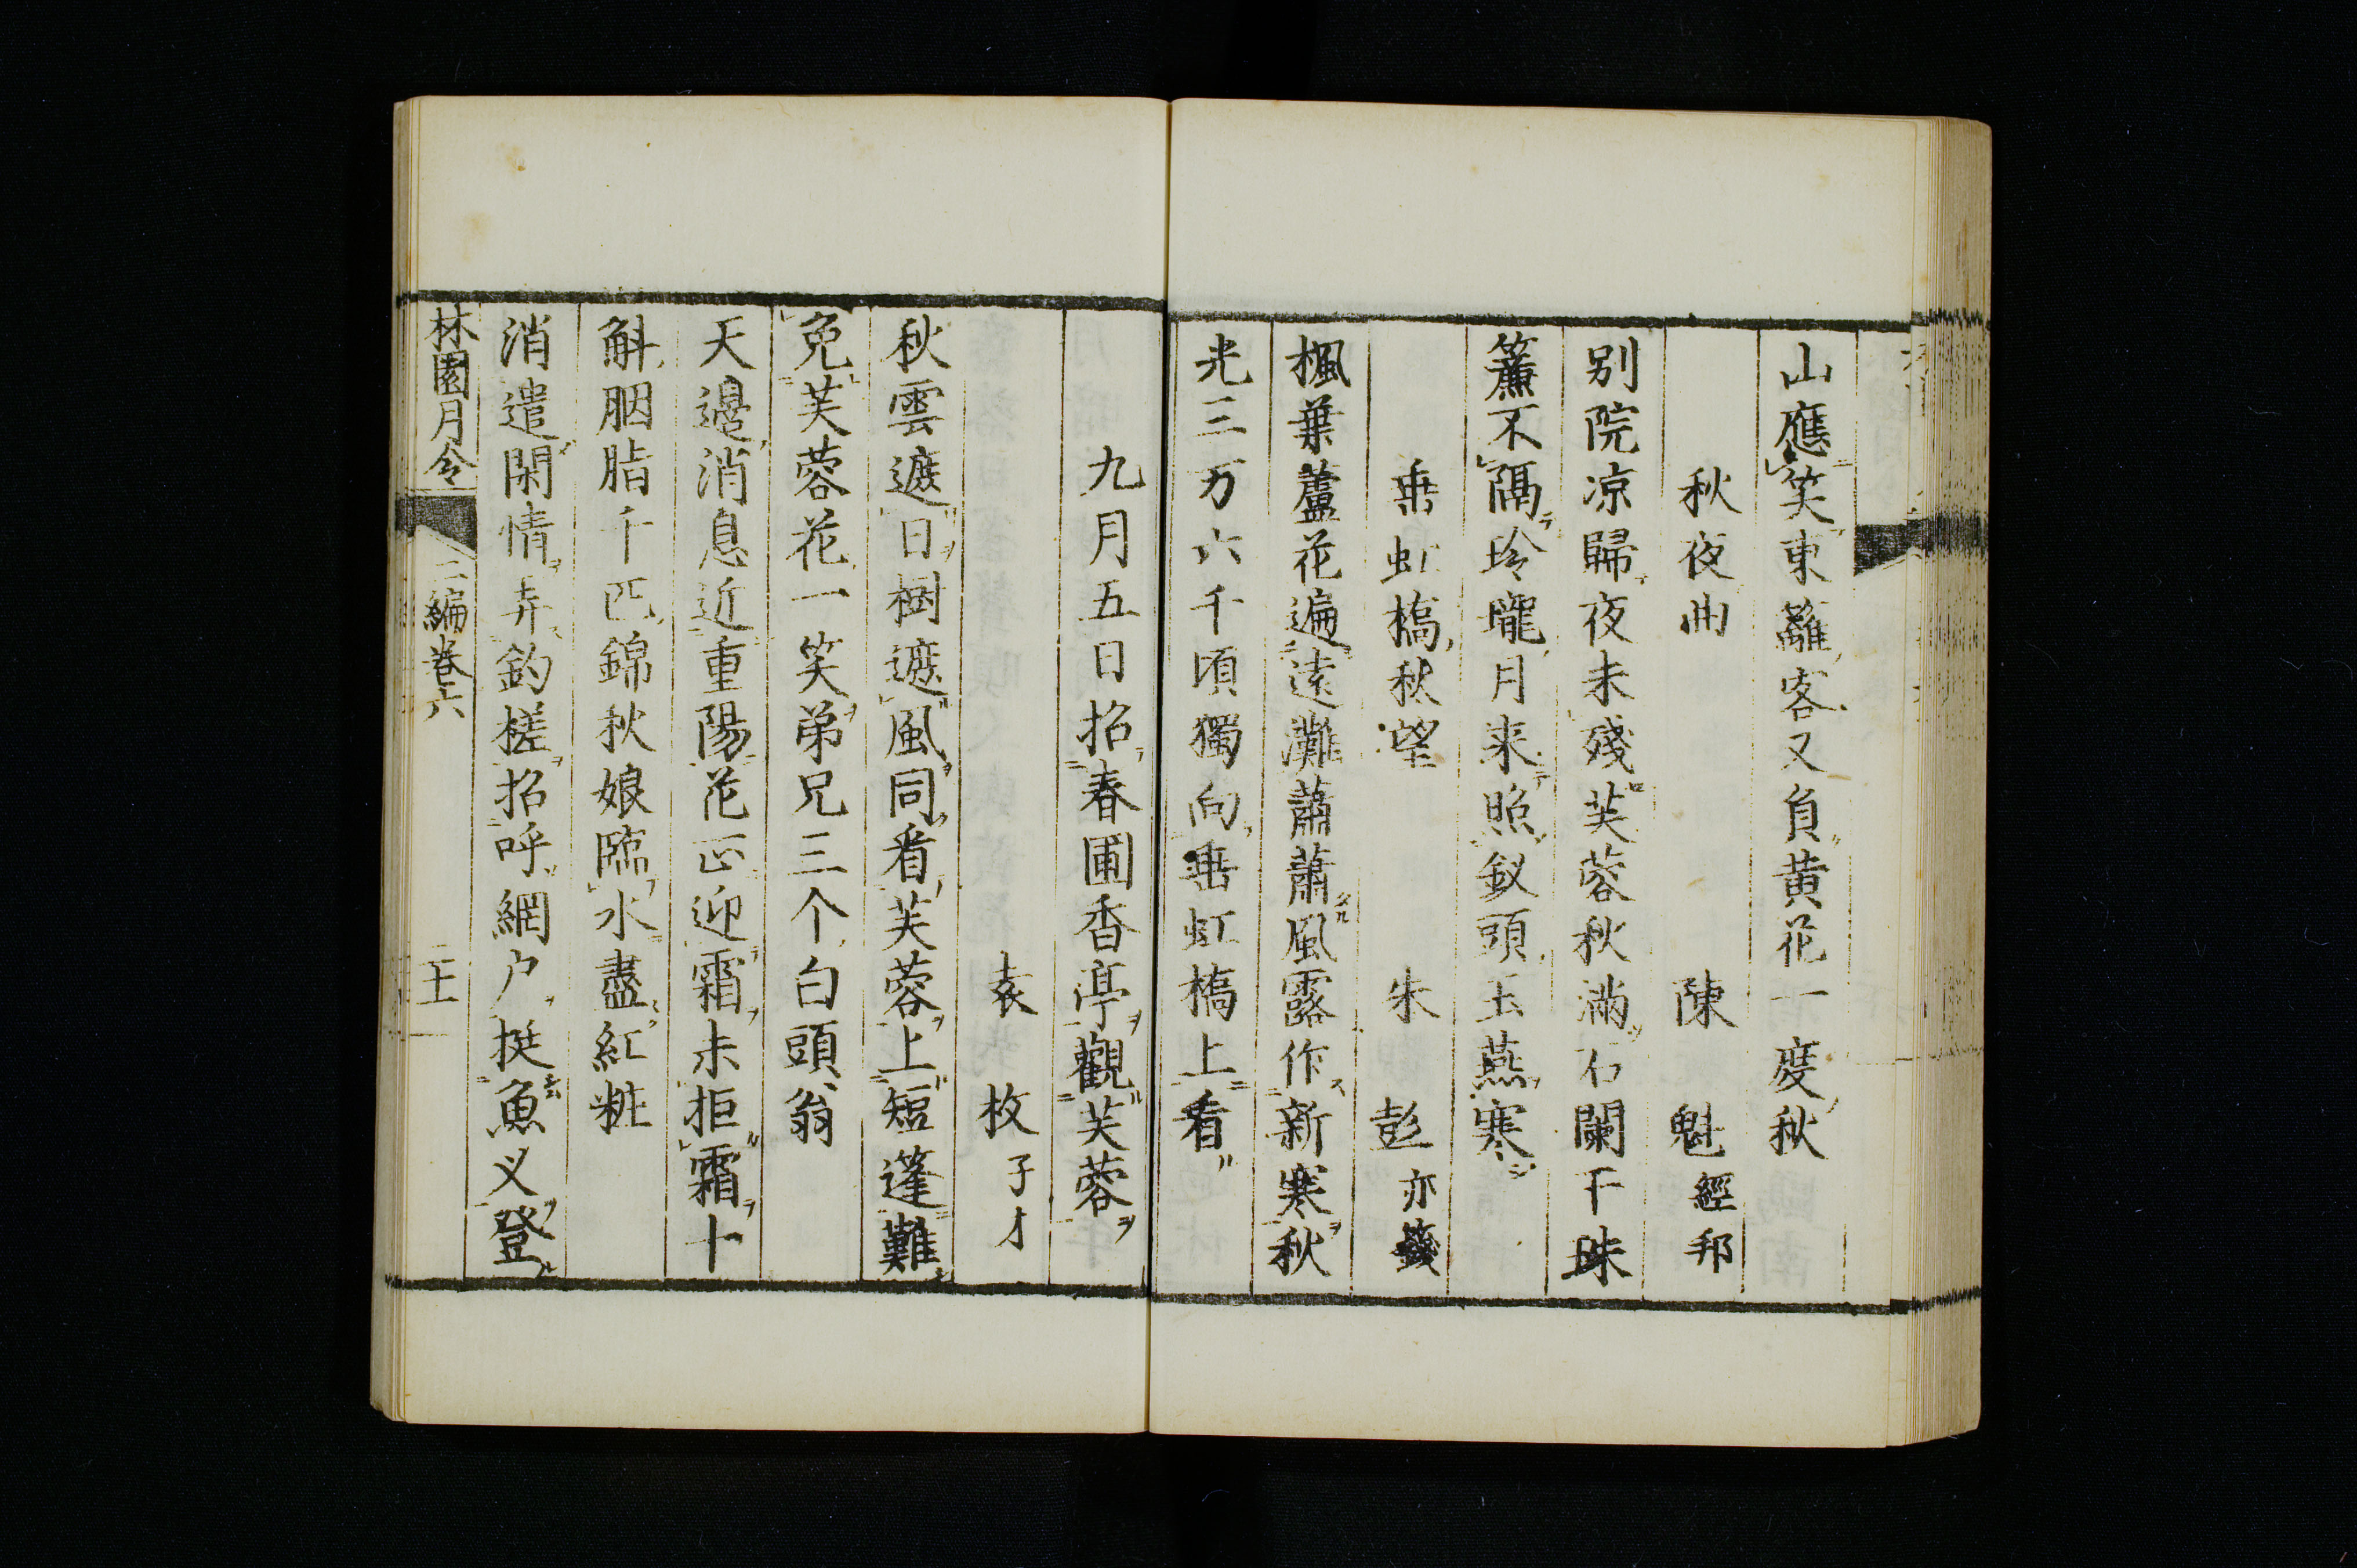 山應笑東籬客又負黄花一度秋
秋夜曲 陳魁經邦
别院凉歸夜未殘芙蓉秋滿石闌干珠
簾不隔玲瓏月来照釵頭玉燕寒
垂虹橋秋望 朱彭亦籛
楓葉蘆花遍遠灘蕭蕭風露作新寒秋
光三万六千頃獨向垂虹橋上看
九月五日招春圃香亭觀芙蓉
袁枚子才
秋雲遮日樹遮風同看芙蓉上短篷難
免芙蓉花一笑弟兄三个白頭翁
天邊消息近重陽花正迎霜未拒霜十
斛胭脂千匹錦秋娘臨水盡紅粧
消遣閑情弄釣槎招呼網户挺魚义登
林園月令 二編卷六